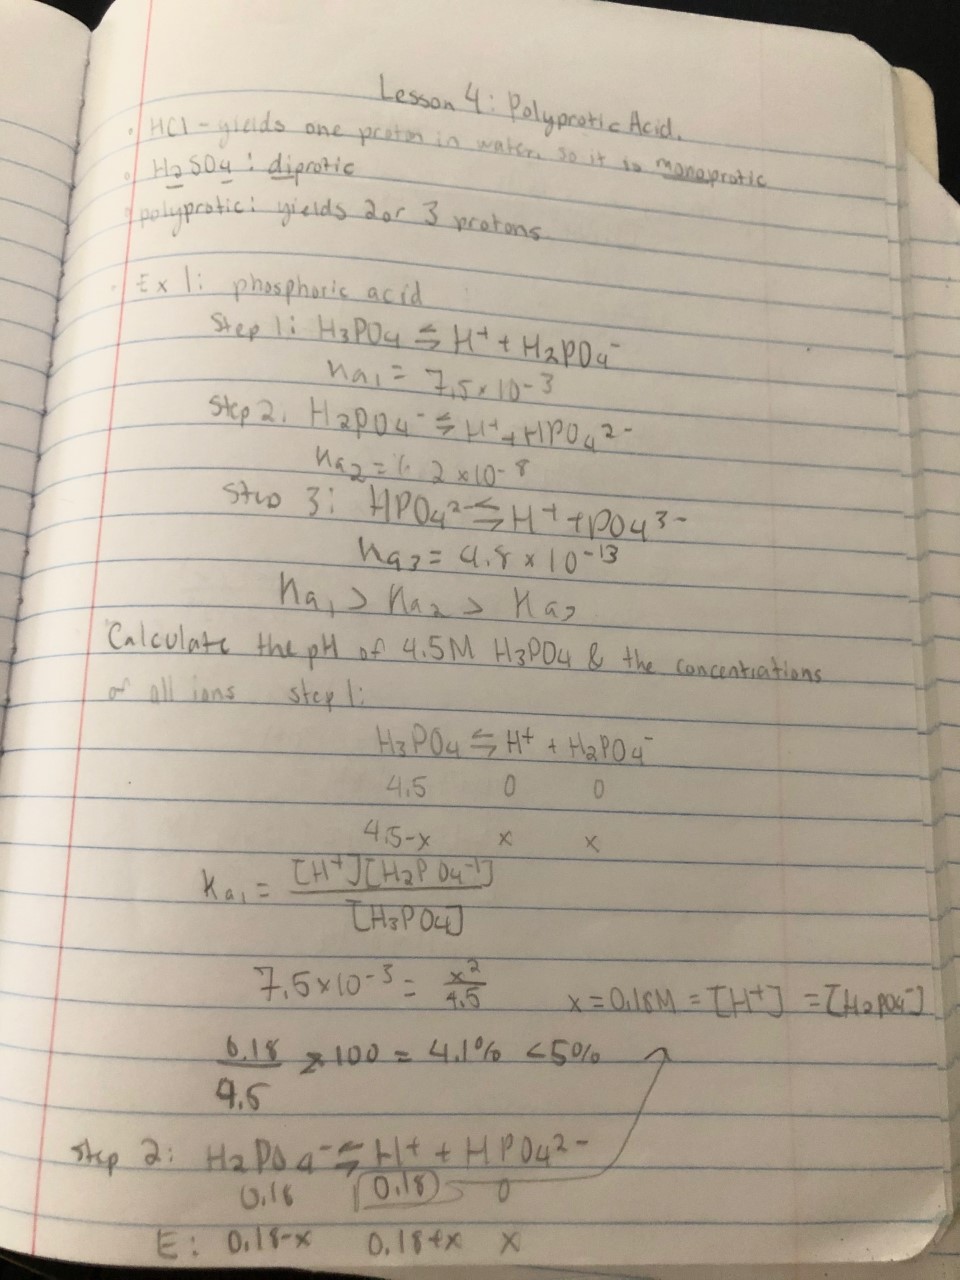 Lesson 4: Polyprotic Acid.
• HCl - yields one proton in water, so it is monoprotic
• H₂SO₄: diprotic
• polyprotic: yields 2 or 3 protons
• Ex 1: phosphoric acid
Step 1: H₃PO₄ ⇆ H⁺ + H₂PO₄⁻
Ka₁ = 7.5 × 10⁻³
Step 2: H₂PO₄⁻ ⇆ H⁺ + HPO₄²⁻
Ka₂ = 6.2 × 10⁻⁸
Step 3: HPO₄²⁻ ⇆ H⁺ + PO₄³⁻
Ka₃ = 4.8 × 10⁻¹³
Ka₁ > Ka₂ > Ka₃
Calculate the pH of 4.5M H₃PO₄ & the concentrations
of all ions step 1:
H₃PO₄ ⇆ H⁺ + H₂PO₄⁻
4.5 0 0
4.5-x x x
Ka₁ = [H⁺][H₂PO₄⁻¹] / [H₃PO₄]
7.5×10⁻³ = x²/4.5 x = 0.18M = [H⁺] = [H₂PO₄⁻]
0.18/4.5 × 100 = 4.1% <5%
Step 2: H₂PO₄⁻ ⇆ H⁺ + HPO₄²⁻
0.18 0.18 0
E: 0.18-x 0.18+x x